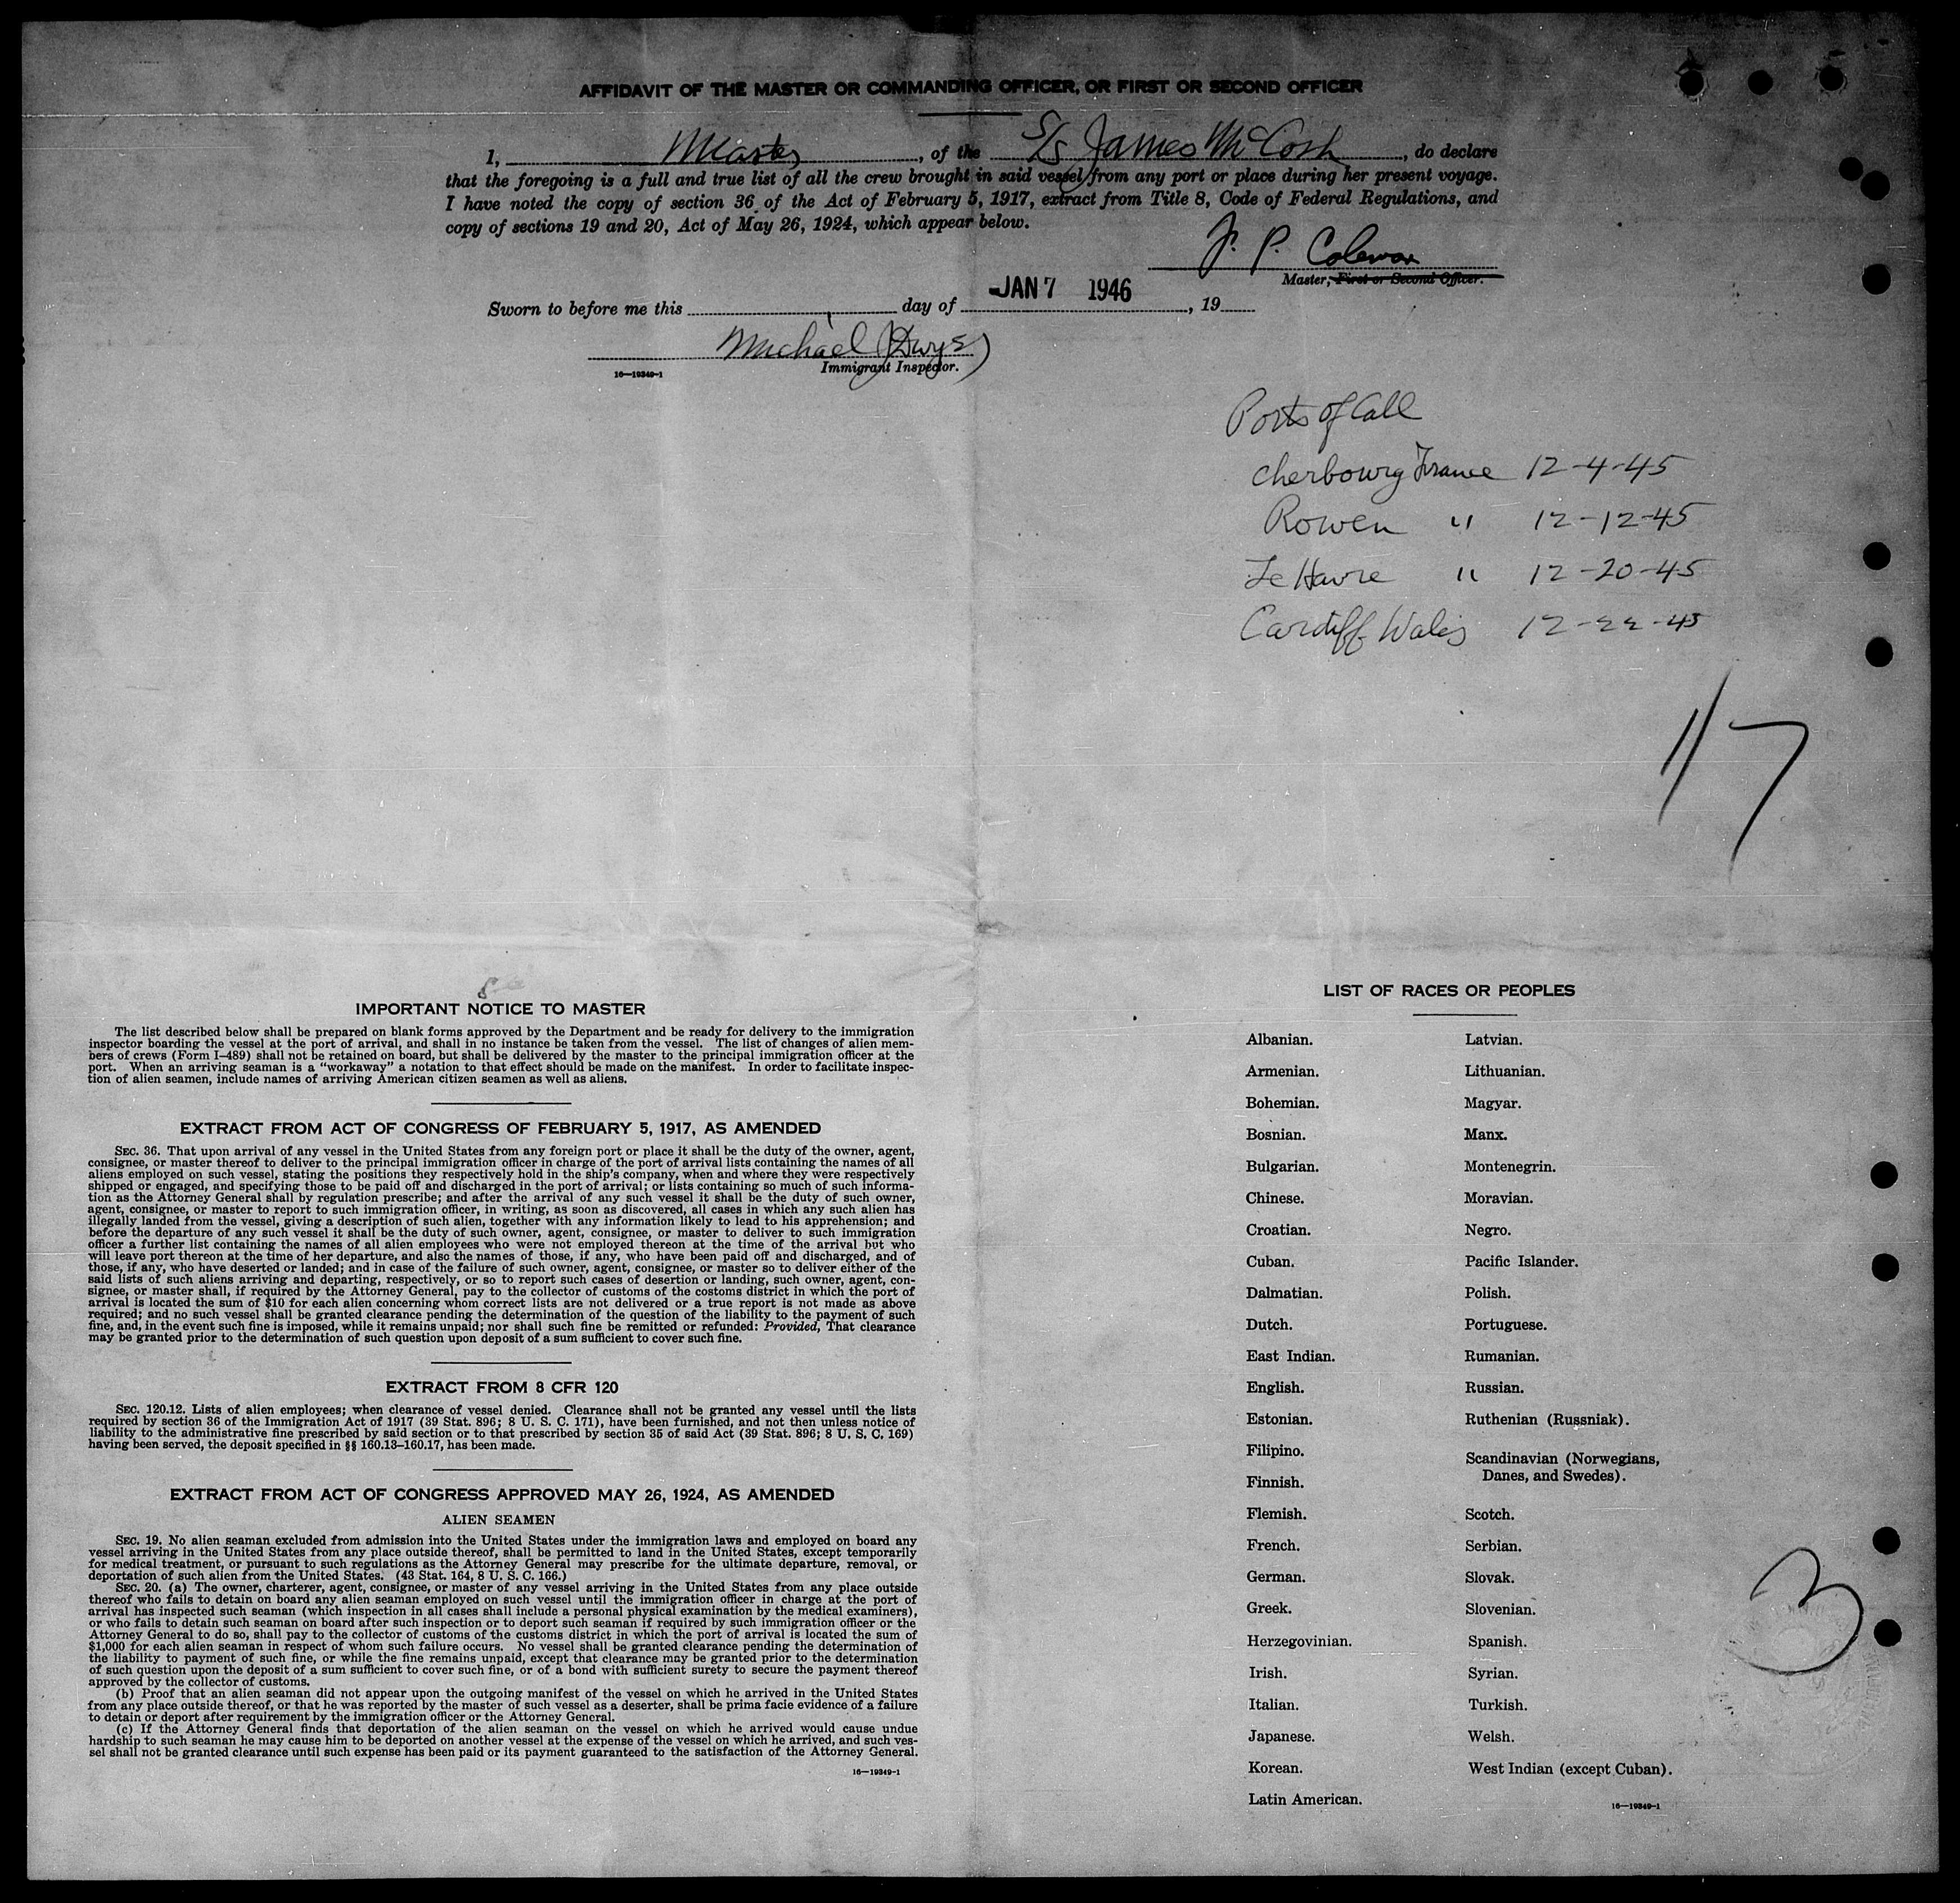 AFFIDAVIT OF THE MASTER OR COMMANDING OFFICER, OR FIRST OR SECOND OFFICER
I, Master, of the S/S James McCosh, do declare
that the foregoing is a full and true list of all the crew brought in said vessel from any port or place during her present voyage.
I have noted the copy of section 36 of the Act of February 5, 1917, extract from Title 8, Code of Federal Regulations, and
copy of sections 19 and 20, Act of May 26, 1924, which appear below.
J. P. Coleman
Master, First or Second Officer.
Sworn to before me this day of JAN 7 1946, 19
Michael
16—19349-1 Immigrant Inspector.
Ports of Call
Cherbourg France 12-4-45
Rowen " 12-12-45
Le Havre " 12-20-45
Cardiff Wales 12-22-45
1/7
IMPORTANT NOTICE TO MASTER
The list described below shall be prepared on blank forms approved by the Department and be ready for delivery to the immigration
inspector boarding the vessel at the port of arrival, and shall in no instance be taken from the vessel. The list of changes of alien mem-
bers of crews (Form I-489) shall not be retained on board, but shall be delivered by the master to the principal immigration officer at the
port. When an arriving seaman is a "workaway" a notation to that effect should be made on the manifest. In order to facilitate inspec-
tion of alien seamen, include names of arriving American citizen seamen as well as aliens.
EXTRACT FROM ACT OF CONGRESS OF FEBRUARY 5, 1917, AS AMENDED
SEC. 36. That upon arrival of any vessel in the United States from any foreign port or place it shall be the duty of the owner, agent,
consignee, or master thereof to deliver to the principal immigration officer in charge of the port of arrival lists containing the names of all
aliens employed on such vessel, stating the positions they respectively hold in the ship's company, when and where they were respectively
shipped or engaged, and specifying those to be paid off and discharged in the port of arrival; or lists containing so much of such informa-
tion as the Attorney General shall by regulation prescribe; and after the arrival of any such vessel it shall be the duty of such owner,
agent, consignee, or master to report to such immigration officer, in writing, as soon as discovered, all cases in which any such alien has
illegally landed from the vessel, giving a description of such alien, together with any information likely to lead to his apprehension; and
before the departure of any such vessel it shall be the duty of such owner, agent, consignee, or master to deliver to such immigration
officer a further list containing the names of all alien employees who were not employed thereon at the time of the arrival but who
will leave port thereon at the time of her departure, and also the names of those, if any, who have been paid off and discharged, and of
those, if any, who have deserted or landed; and in case of the failure of such owner, agent, consignee, or master so to deliver either of the
said lists of such aliens arriving and departing, respectively, or so to report such cases of desertion or landing, such owner, agent, con-
signee, or master shall, if required by the Attorney General, pay to the collector of customs of the costoms district in which the port of
arrival is located the sum of $10 for each alien concerning whom correct lists are not delivered or a true report is not made as above
required; and no such vessel shall be granted clearance pending the determination of the question of the liability to the payment of such
fine, and, in the event such fine is imposed, while it remains unpaid; nor shall such fine be remitted or refunded: Provided, That clearance
may be granted prior to the determination of such question upon deposit of a sum sufficient to cover such fine.
EXTRACT FROM 8 CFR 120
SEC. 120.12. Lists of alien employees; when clearance of vessel denied. Clearance shall not be granted any vessel until the lists
required by section 36 of the Immigration Act of 1917 (39 Stat. 896; 8 U. S. C. 171), have been furnished, and not then unless notice of
liability to the administrative fine prescribed by said section or to that prescribed by section 35 of said Act (39 Stat. 896; 8 U. S. C. 169)
having been served, the deposit specified in §§ 160.13-160.17, has been made.
EXTRACT FROM ACT OF CONGRESS APPROVED MAY 26, 1924, AS AMENDED
ALIEN SEAMEN
SEC. 19. No alien seaman excluded from admission into the United States under the immigration laws and employed on board any
vessel arriving in the United States from any place outside thereof, shall be permitted to land in the United States, except temporarily
for medical treatment, or pursuant to such regulations as the Attorney General may prescribe for the ultimate departure, removal, or
deportation of such alien from the United States. (43 Stat. 164, 8 U. S. C. 166.)
SEC. 20. (a) The owner, charterer, agent, consignee, or master of any vessel arriving in the United States from any place outside
thereof who fails to detain on board any alien seaman employed on such vessel until the immigration officer in charge at the port of
arrival has inspected such seaman (which inspection in all cases shall include a personal physical examination by the medical examiners),
or who fails to detain such seaman on board after such inspection or to deport such seaman if required by such immigration officer or the
Attorney General to do so, shall pay to the collector of customs of the customs district in which the port of arrival is located the sum of
$1,000 for each alien seaman in respect of whom such failure occurs. No vessel shall be granted clearance pending the determination of
the liability to payment of such fine, or while the fine remains unpaid, except that clearance may be granted prior to the determination
of such question upon the deposit of a sum sufficient to cover such fine, or of a bond with sufficient surety to secure the payment thereof
approved by the collector of customs.
(b) Proof that an alien seaman did not appear upon the outgoing manifest of the vessel on which he arrived in the United States
from any place outside thereof, or that he was reported by the master of such vessel as a deserter, shall be prima facie evidence of a failure
to detain or deport after requirement by the immigration officer or the Attorney General.
(c) If the Attorney General finds that deportation of the alien seaman on the vessel on which he arrived would cause undue
hardship to such seaman he may cause him to be deported on another vessel at the expense of the vessel on which he arrived, and such ves-
sel shall not be granted clearance until such expense has been paid or its payment guaranteed to the satisfaction of the Attorney General.
16—19349-1
LIST OF RACES OR PEOPLES
Albanian.
Armenian.
Bohemian.
Bosnian.
Bulgarian.
Chinese.
Croatian.
Cuban.
Dalmatian.
Dutch.
East Indian.
English.
Estonian.
Filipino.
Finnish.
Flemish.
French.
German.
Greek.
Herzegovinian.
Irish.
Italian.
Japanese.
Korean.
Latin American.
Latvian.
Lithuanian.
Magyar.
Manx.
Montenegrin.
Moravian.
Negro.
Pacific Islander.
Polish.
Portuguese.
Rumanian.
Russian.
Ruthenian (Russniak).
Scandinavian (Norwegians,
Danes, and Swedes).
Scotch.
Serbian.
Slovak.
Slovenian.
Spanish.
Syrian.
Turkish.
Welsh.
West Indian (except Cuban).
16—19349-1
3